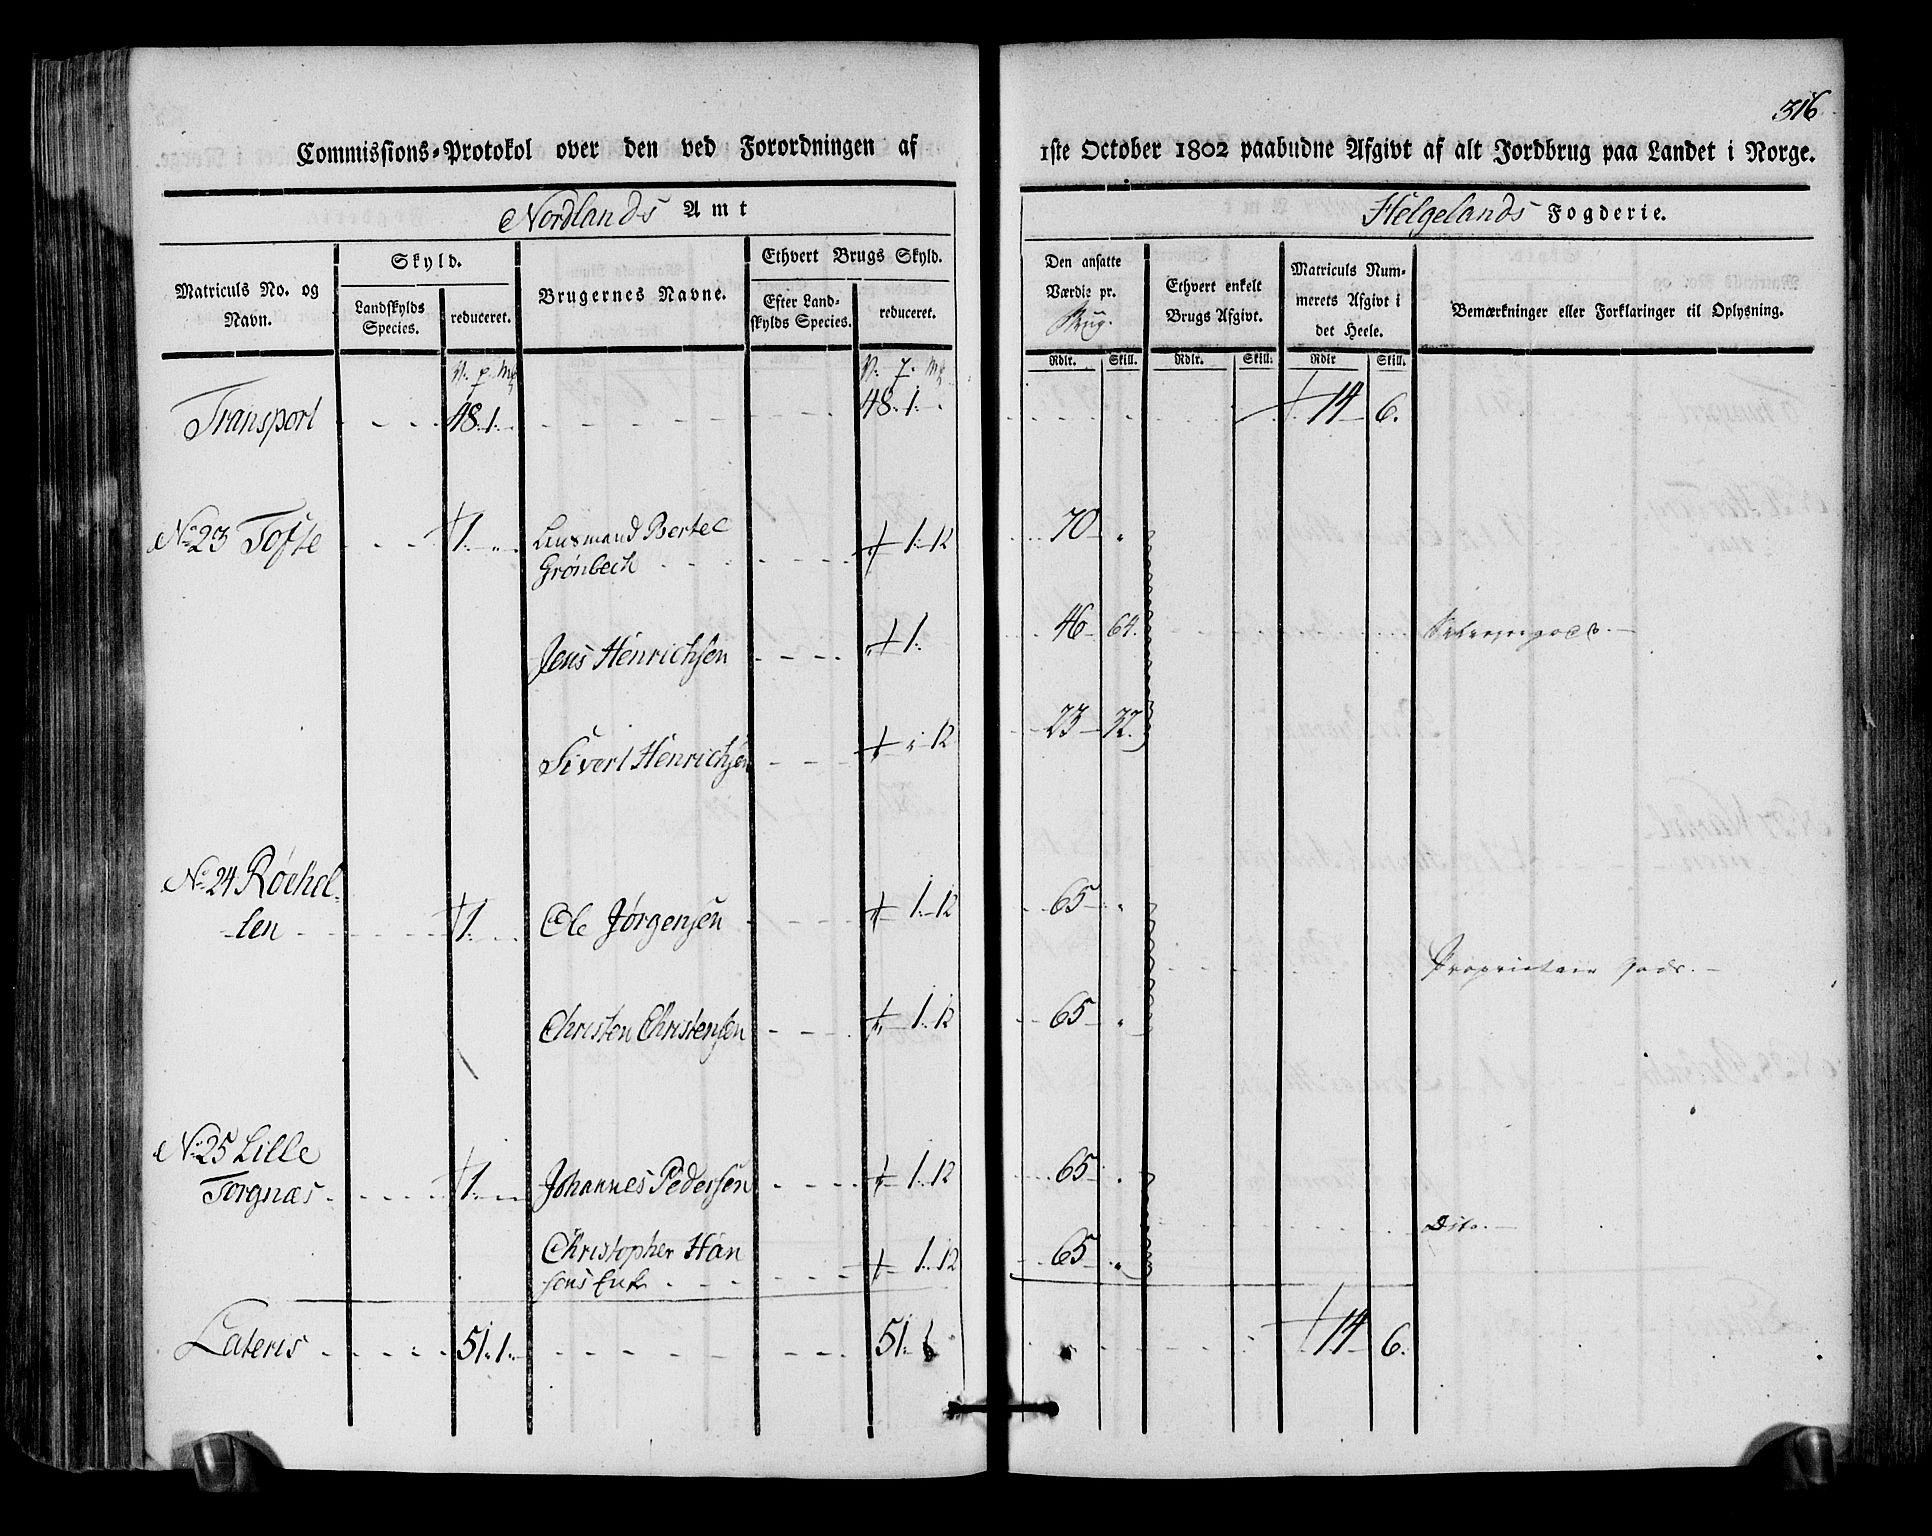 316.
Commissions-Protokol over den ved Forordningen af 1ste October 1802 paabudne Afgivt af alt Jordbrug paa Landet i Norge.
Nordlands Amt Helgelands Fogderie.
Matriculs No. og Navn. Skyld. Landskylds Species. reduceret. Brugernes Navne. Ethvert Brugs Skyld. Efter Landskylds Species. reduceret. Den ansatte Værdie pr. Brug. Ethvert enkelt Brugs Afgivt. Matriculs Nummerets Afgivt i det Heele. Bemærkninger eller Forklaringer til Oplysning.
V. p. Mk V. p. Mk Rdlr. Skill. Rdlr. Skill. Rdlr Skill.
Transport 48. 1. 48. 1. 14 6.
No 23 Tofte 1. Lensmand Bertel
Grönbech 1. 12 70 "
Jens Henrichsen 1. 46 64.
Sivert Henrichsen 12 23 32.
No 24 Röehol-
len 1. Ole Jørgensen 1. 12 65 "
Proprietair Gods.
Christen Christensen 1. 12 65 "
No 25 Lille
Torgnæs 1. Johannes Pedersen 1. 12 65 "
Dito.
Christopher Han
sens Enke 1. 12 65 "
Lateris 51. 1. 51. 14 6.